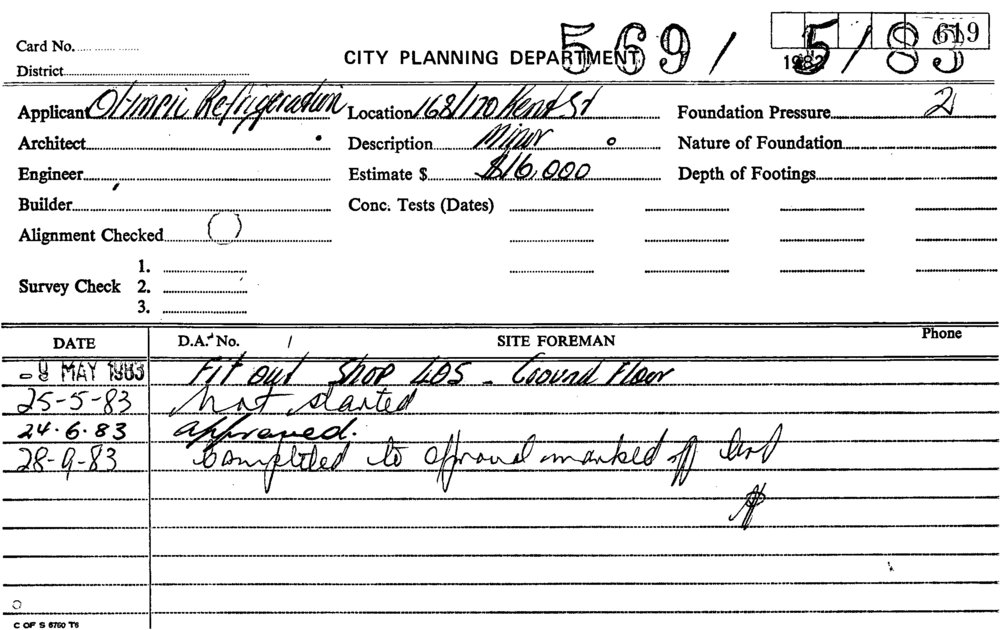 569/ 5/83
619
1982
Card No.
CITY PLANNING DEPARTMENT
District
Applicant Olimpic Refrigeration Location 168/170 Kent St Foundation Pressure 2
Architect Description Minor Nature of Foundation
Engineer Estimate $ $16,000 Depth of Footings
Builder Conc. Tests (Dates)
Alignment Checked
1.
Survey Check 2.
3.
DATE D.A. No. / SITE FOREMAN Phone
-9 MAY 1983 Fit out Shop 405 - Ground Floor
25-5-83 Not started
24.6.83 approved.
28-9-83 Completed to approval marked off
C OF S 6760 T6